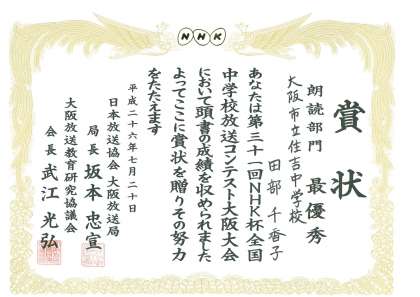 NHK
賞状
朗読部門 最優秀
大阪市立住吉中学校
田部 千香子
あなたは第三十一回NHK杯全国
中学校放送コンテスト大阪大会
において頭書の成績を収められました
よってここに賞状を贈りその努力
をたたえます
平成二十六年七月二十日
日本放送協会 大阪放送局
局長 坂本 忠宣
大阪放送教育研究協議会
会長 武江 光弘